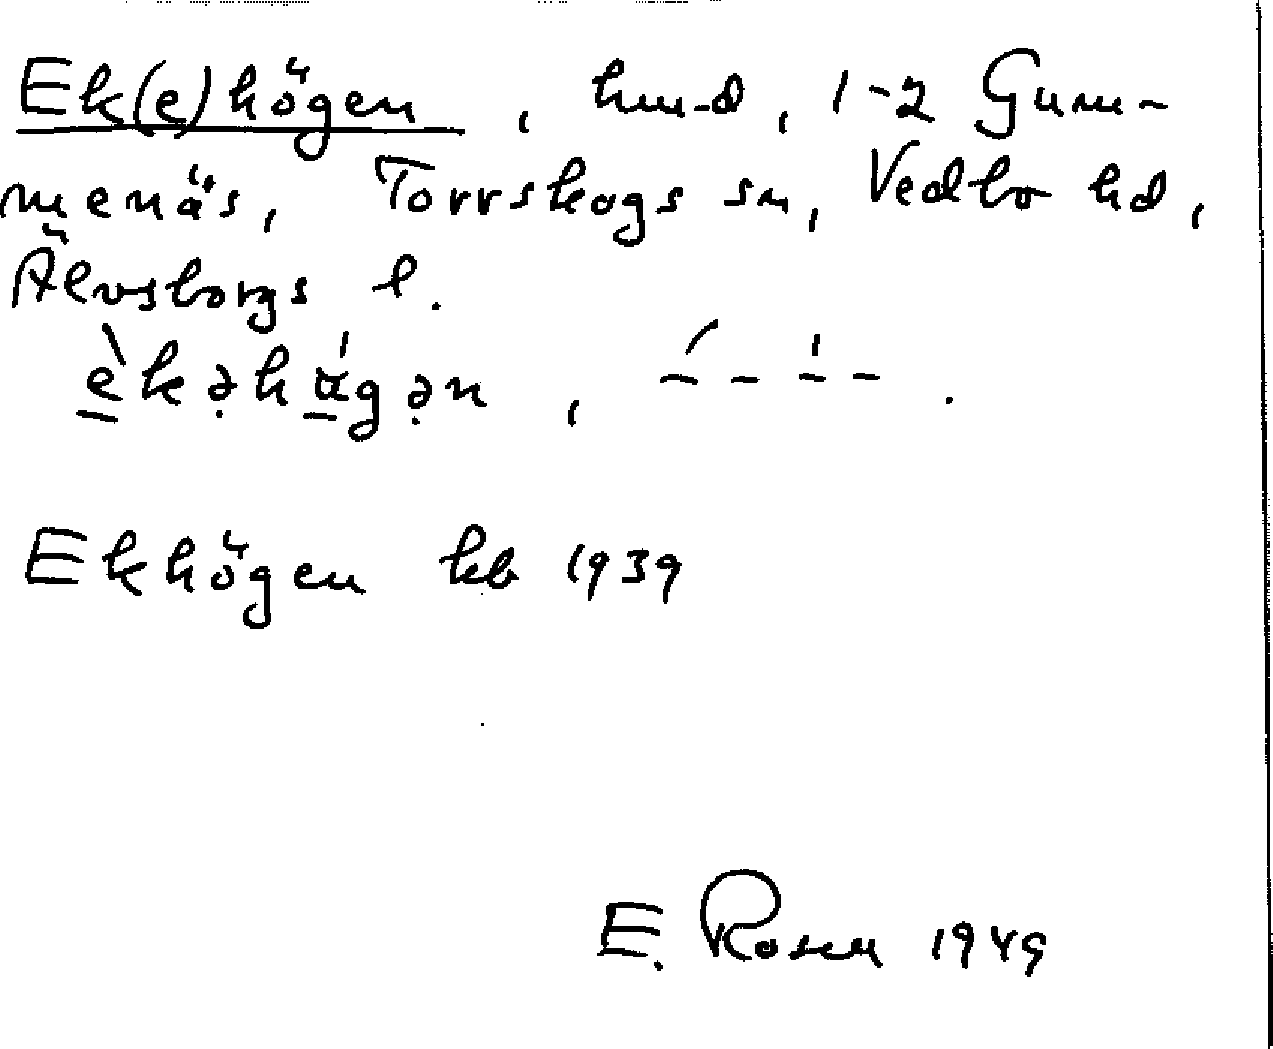 Ek(e)högen, hmd, 1-2 Gum-
menäs, Torrskogs sn, Vedbo hd,
Älvsborgs l.
Ekhögen kb 1939
E. Rosen 1949